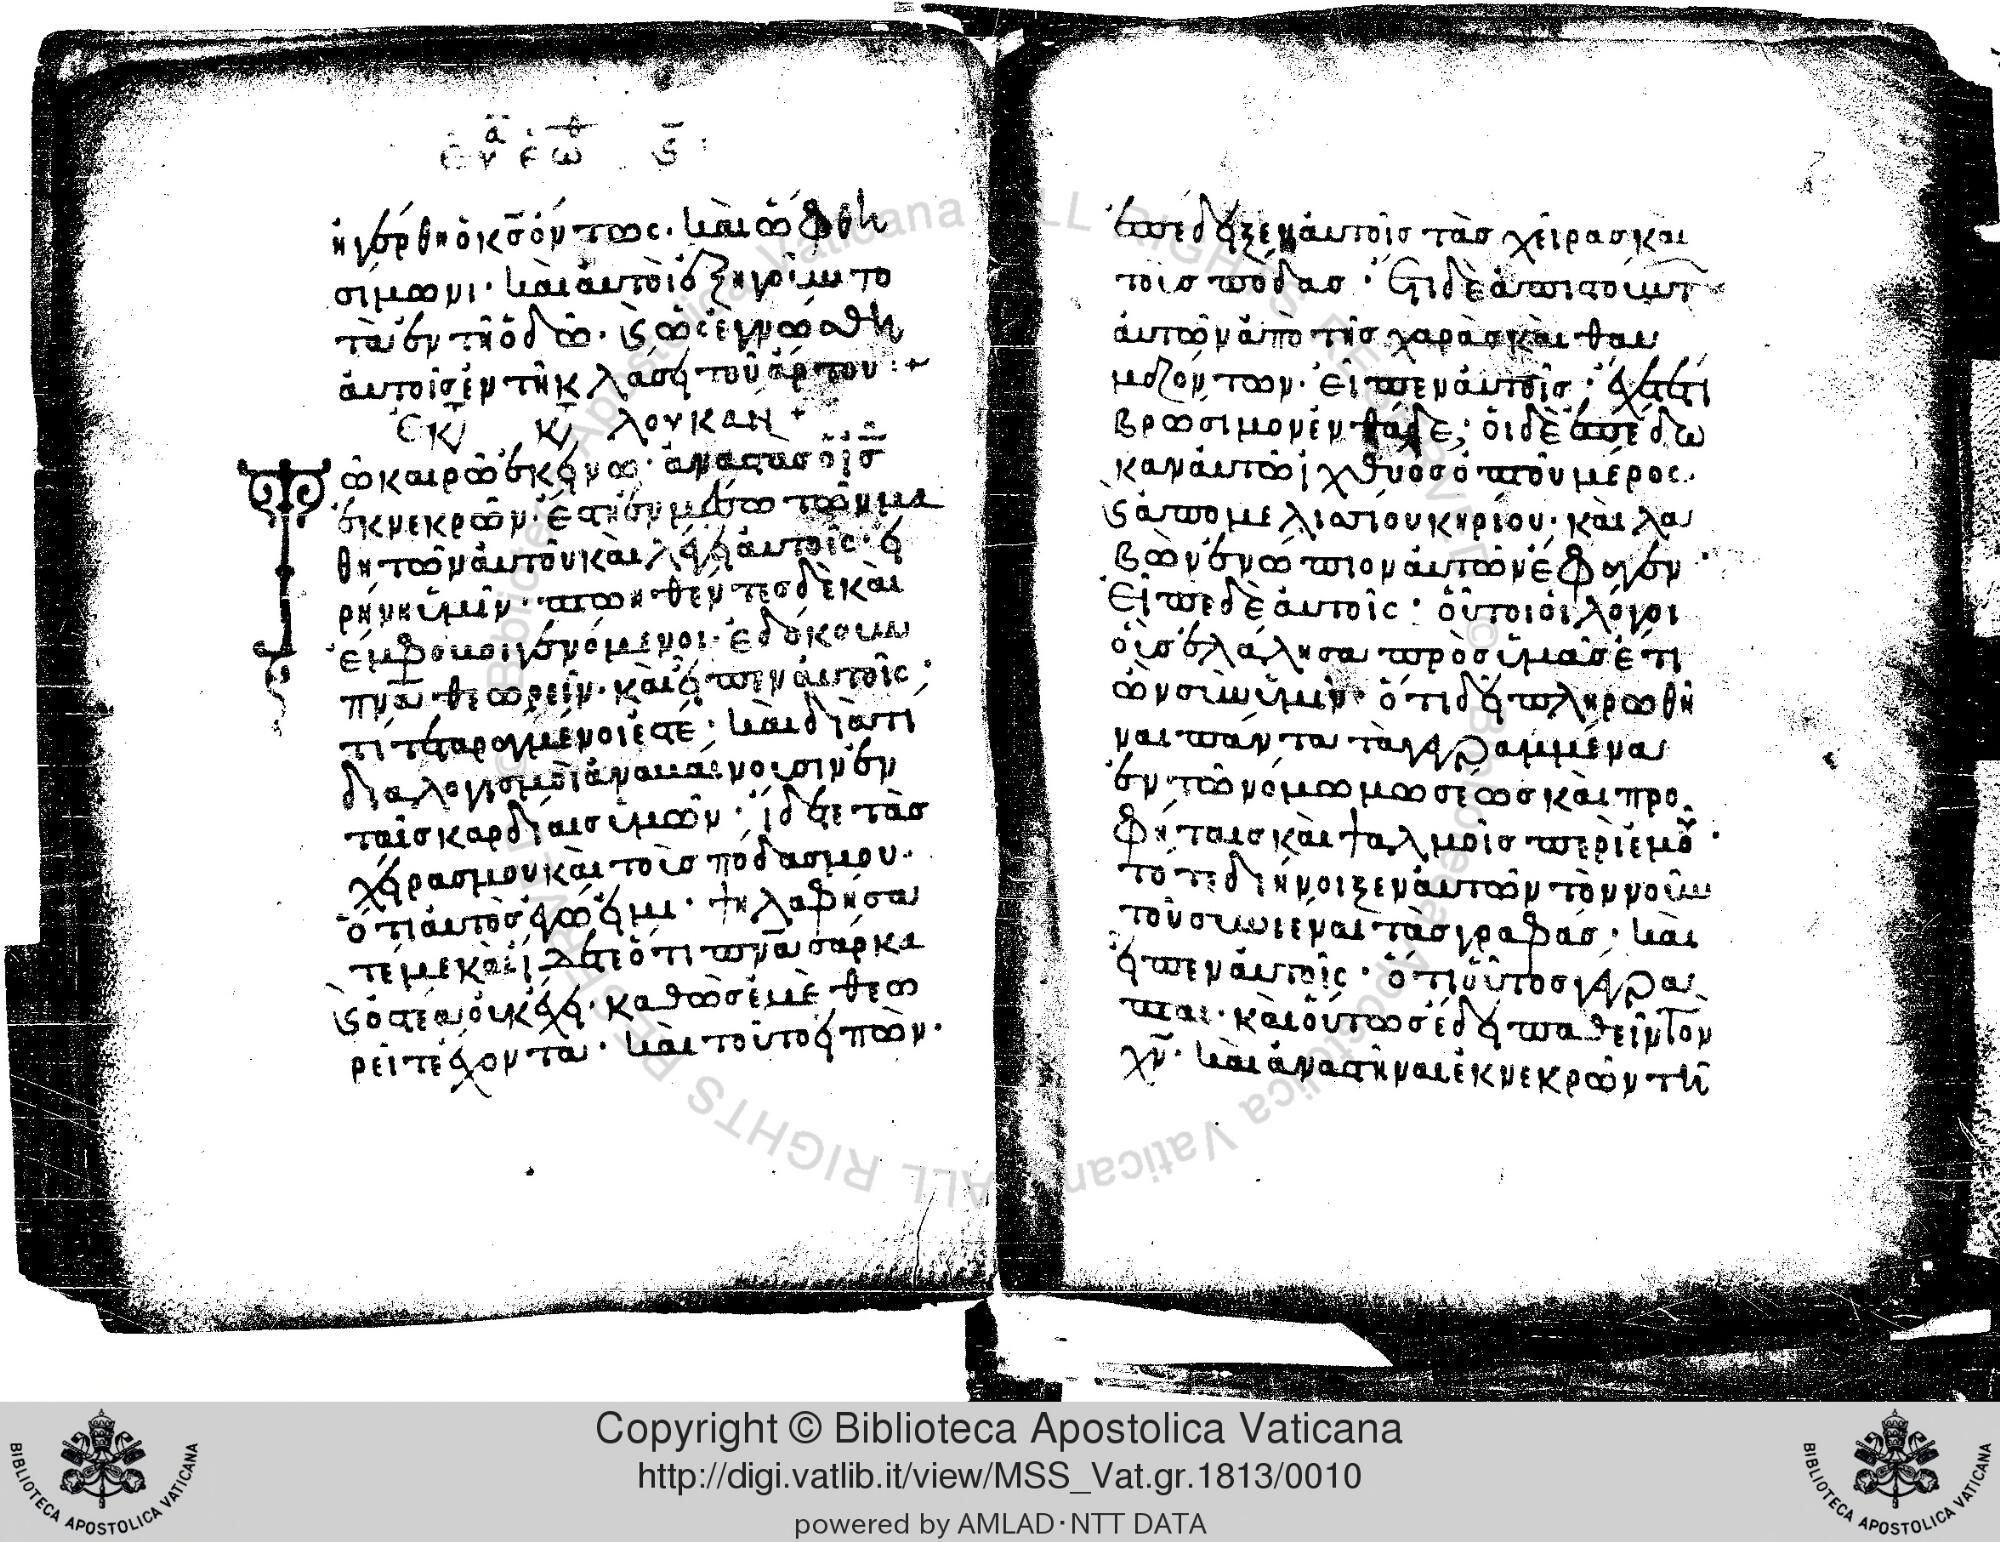 εὐα ἑωθ ϛ
ἠγέρθη ὁ κς ὄντως· καὶ ὤφθη
σίμωνι· καὶ αὐτοὶ ἐξηγοῦντο
τὰ ἐν τῆ ὁδῶ· ϗ ὡς ἐγνώσθη
αὐτοῖς ἐν τῆ κλάσει τοῦ ἄρτου :+
ἐκ τ κ λουκαν +
Τῶ καιρῶ ἐκείνω· ἀναστὰσ ὁ ισ
ἐκ νεκρῶν· ἔστη ἐν μέσω τῶν μα
θητῶν αὐτοῦ καὶ λέγει αὐτοῖς· εἰ
ρήνη ὑμῖν· πτωηθέντεσ δὲ καὶ
ἔμφοβοι γενόμενοι· ἐδόκουν
πνα θεωρεῖν· καὶ εἶπεν αὐτοῖς·
τί τεταραγμένοι ἐστέ· καὶ διὰ τί
διαλογισμοὶ ἀναβαίνουσιν ἐν
ταῖσ καρδίαισ ὑμῶν· ἴδετε τὰσ
χεῖρασ μου καὶ τοὺσ πόδασ μου·
ὅτι αὐτὸσ ἐγώ εἰμι· ψηλαφήσα
τέ με καὶ ἴδετε ὅτι πνα σάρκα
ϗ ὀστέα οὐκ ἔχει· καθὼσ ἐμὲ θεω
ρεῖτε ἔχοντα· καὶ τοῦτο εἰπὼν·
ἐπέδειξεν αὐτοῖσ τὰσ χεῖρασ καὶ
τοὺσ πόδασ· ἔτι δὲ ἀπιστούντ
αὐτῶν ἀπὸ τῆσ χαρᾶσ καὶ θαυ
μαζόντων· εἶπεν αὐτοῖσ· ἔχετέ τι
βρώσιμον ἐνθάδε; οἱ δὲ ἐπέδω
καν αὐτῶ ἰχθύοσ ὀπτοῦ μέρος·
ϗ ἀπὸ μελισσίου κηρίου· καὶ λα
βὼν ἐνώπιον αὐτῶν ἔφαγεν·
εἶπε δὲ αὐτοῖς· οὗτοι οἱ λόγοι
οὓσ ἐλάλησα πρὸσ ὑμᾶσ ἔτι
ὢν σὺν ὑμῖν· ὅτι δεῖ πληρωθῆ
ναι πάντα τὰ γεγραμμένα
ἐν τῶ νόμω μωσέωσ καὶ προ
φήταισ καὶ ψαλμοῖσ περὶ ἐμοῦ·
τότε διήνοιξεν αὐτῶν τὸν νοῦν
τοῦ συνιέναι τὰσ γραφάσ· καὶ
εἶπεν αὐτοῖς· ὅτι οὕτοσ γέγρα
πται· καὶ οὕτωσ ἔδει παθεῖν τὸν
χν· καὶ ἀναστῆναι ἐκ νεκρῶν τῆ
Copyright © Biblioteca Apostolica Vaticana
http://digi.vatlib.it/view/MSS_Vat.gr.1813/0010
powered by AMLAD·NTT DATA
BIBLIOTECA APOSTOLICA VATICANA
BIBLIOTECA APOSTOLICA VATICANA